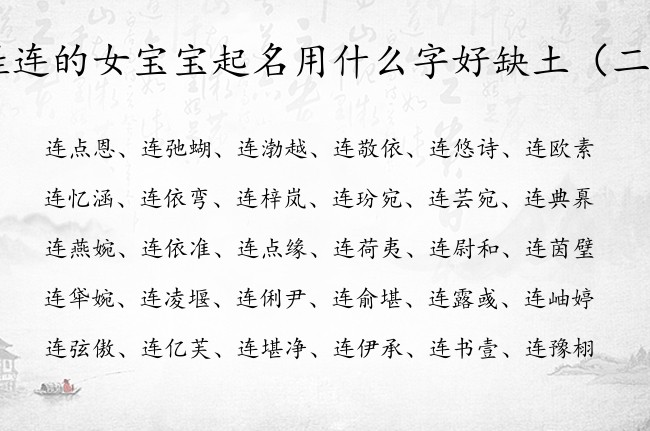 连的女宝宝起名用什么字好缺土（二
连点恩、连弛蝴、连渤越、连敬依、连悠诗、连欧素
连忆涵、连依弯、连梓岚、连玢宛、连芸宛、连典羃
连燕婉、连依准、连点缘、连荷夷、连尉和、连茵璧
连毕婉、连凌堰、连俐尹、连俞堪、连露彧、连岫婷
连弦傲、连亿芙、连堪净、连伊承、连书壹、连豫栩